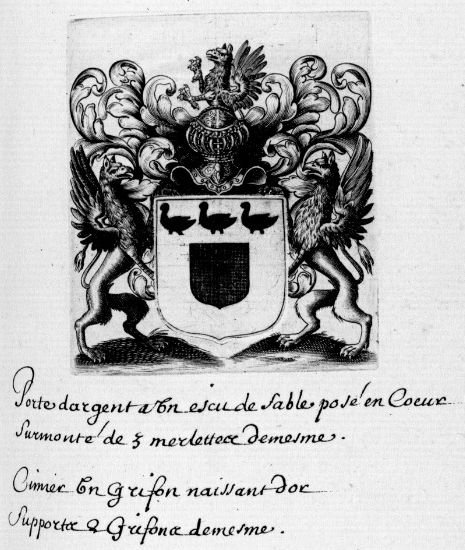 Porte dargent a Un escu de sable posé en Coeur
surmonté de 3 merlettes demesme.
Cimier Un Grifon naissant dor
Supportz 2 Grifons demesme.